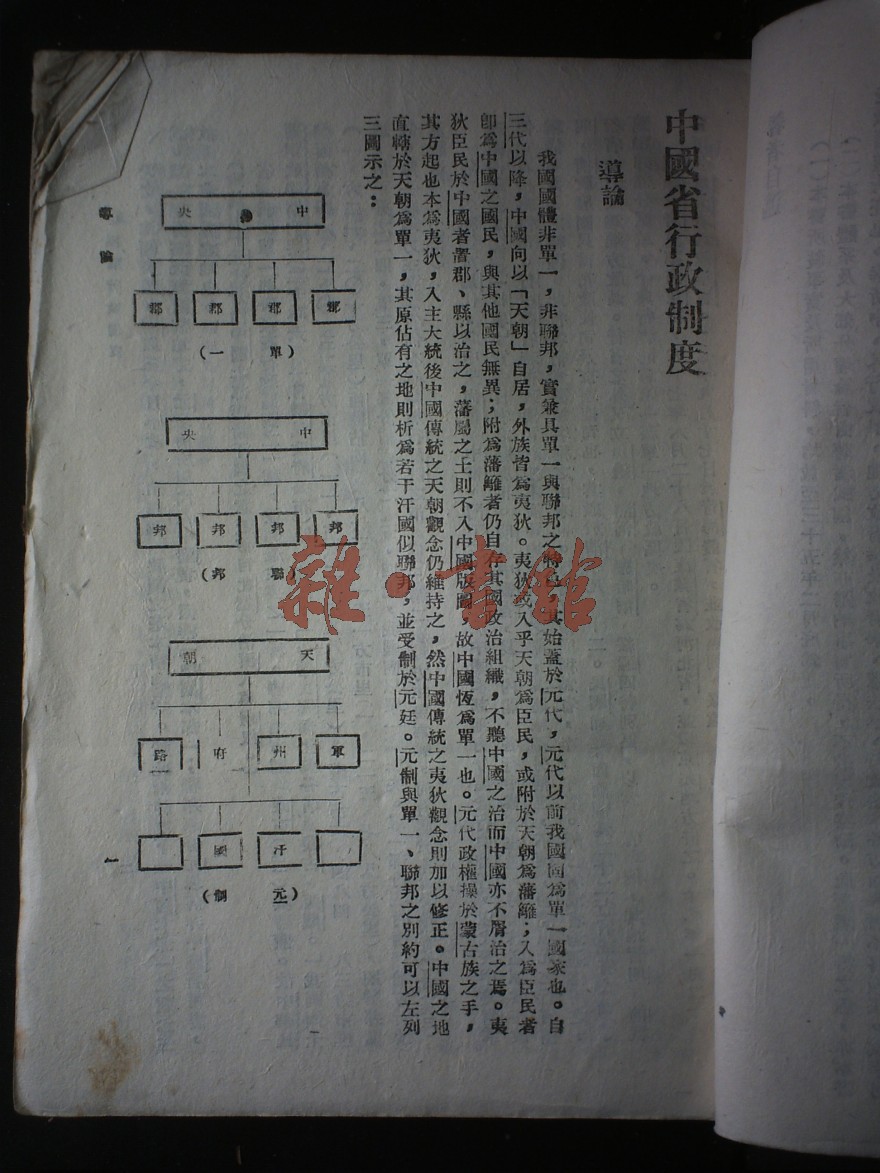 中國省行政制度
導論
我國國體非單一，非聯邦，實兼具單一與聯邦之特色，其始蓋於元代，元代以前我國固為單一國家也。自
三代以降，中國向以「天朝」自居，外族皆為夷狄。夷狄或入乎天朝為臣民，或附於天朝為藩籬；入為臣民者
卽爲中國之國民，與其他國民無異；附爲藩籬者仍自存其國政治組織，不聽中國之治而中國亦不屑治之焉。夷
狄臣民於中國者置郡、縣以治之，藩屬之土則不入中國版圖，故中國恆爲單一也。元代政權操於蒙古族之手，
其方起也本爲夷狄，入主大統後中國傳統之天朝觀念仍維持之，然中國傳統之夷狄觀念則加以修正。中國之地
直轄於天朝爲單一，其原佔有之地則析爲若干汗國似聯邦，並受制於元廷。元制與單一、聯邦之別約可以左列
三圖示之：
中央
郡 郡 郡 郡
（單一）
中央
邦 邦 邦 邦
（聯邦）
天朝
軍 州 府 路
汗國
（元制）
導論
一
雜·書館